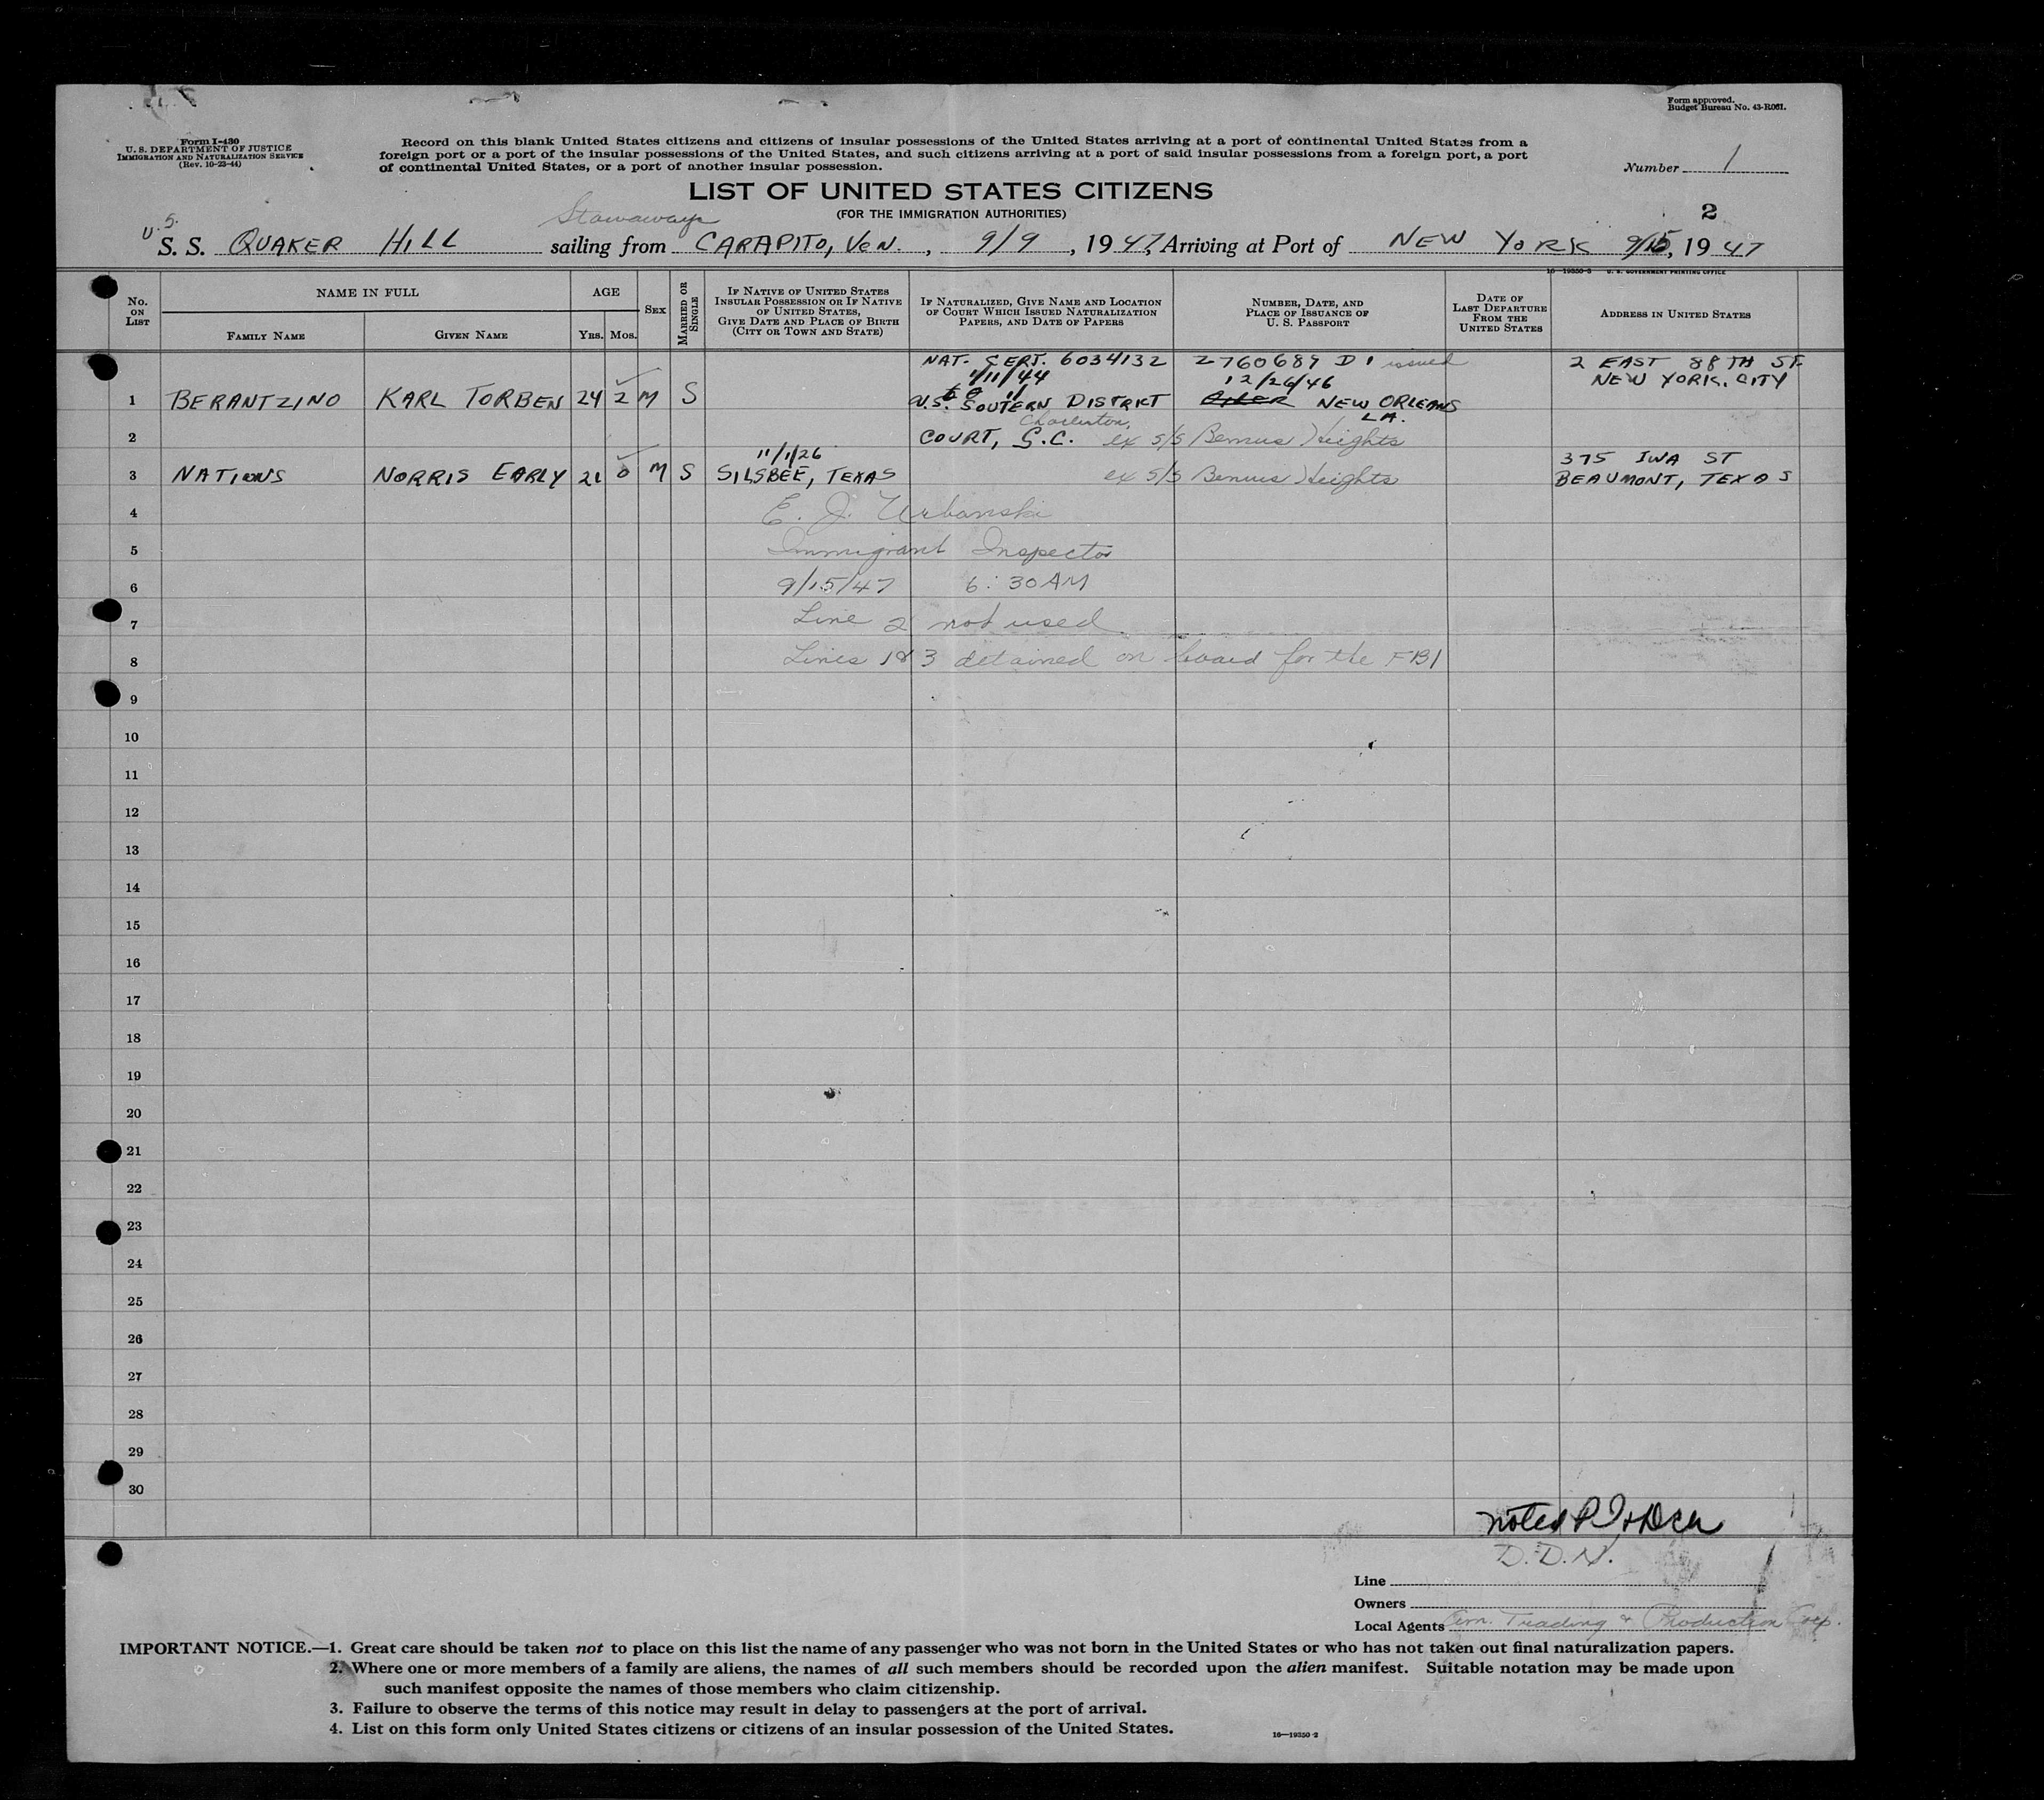 Form approved.
Budget Bureau No. 43-R061.
Form I-430
U. S. DEPARTMENT OF JUSTICE
IMMIGRATION AND NATURALIZATION SERVICE
(Rev. 10-23-44)
Record on this blank United States citizens and citizens of insular possessions of the United States arriving at a port of continental United States from a
foreign port or a port of the insular possessions of the United States, and such citizens arriving at a port of said insular possessions from a foreign port, a port
of continental United States, or a port of another insular possession.
Number 1
LIST OF UNITED STATES CITIZENS
(FOR THE IMMIGRATION AUTHORITIES)
Stowaways
2
U.S.
S. S. QUAKER HILL sailing from CARAPITO, VEN., 9/9, 1947, Arriving at Port of NEW YORK 9/15, 1947
16—19350-2 U. S. GOVERNMENT PRINTING OFFICE
No. ON LIST
NAME IN FULL
FAMILY NAME
GIVEN NAME
AGE
YRS.
MOS.
SEX
MARRIED OR SINGLE
IF NATIVE OF UNITED STATES INSULAR POSSESSION OR IF NATIVE OF UNITED STATES, GIVE DATE AND PLACE OF BIRTH (CITY OR TOWN AND STATE)
IF NATURALIZED, GIVE NAME AND LOCATION OF COURT WHICH ISSUED NATURALIZATION PAPERS, AND DATE OF PAPERS
NUMBER, DATE, AND PLACE OF ISSUANCE OF U. S. PASSPORT
DATE OF LAST DEPARTURE FROM THE UNITED STATES
ADDRESS IN UNITED STATES
NAT. CERT. 6034132 Z760689 D1 issued 2 EAST 88TH ST.
1/11/44 12/26/46 NEW YORK. CITY
1 BERANTZINO KARL TORBEN 24 2 M S U.S. SOUTERN DISTRICT NEW ORLEANS
Charleston, LA.
2 COURT, S.C. ex s/s Bemus Heights
11/1/26 375 IWA ST
3 NATIONS NORRIS EARLY 21 0 M S SILSBEE, TEXAS ex s/s Bemus Heights BEAUMONT, TEXAS
4 E. J. Urbanski
5 Immigrant Inspector
6 9/15/47 6:30 AM
7 Line 2 not used
8 Lines 1 & 3 detained on board for the FBI
9
10
11
12
13
14
15
16
17
18
19
20
21
22
23
24
25
26
27
28
29
30
noted
D. D. N.
Line
Owners
Local Agents Am. Trading & Production Corp.
IMPORTANT NOTICE.—1. Great care should be taken not to place on this list the name of any passenger who was not born in the United States or who has not taken out final naturalization papers.
2. Where one or more members of a family are aliens, the names of all such members should be recorded upon the alien manifest. Suitable notation may be made upon
such manifest opposite the names of those members who claim citizenship.
3. Failure to observe the terms of this notice may result in delay to passengers at the port of arrival.
4. List on this form only United States citizens or citizens of an insular possession of the United States.
16—19350-2